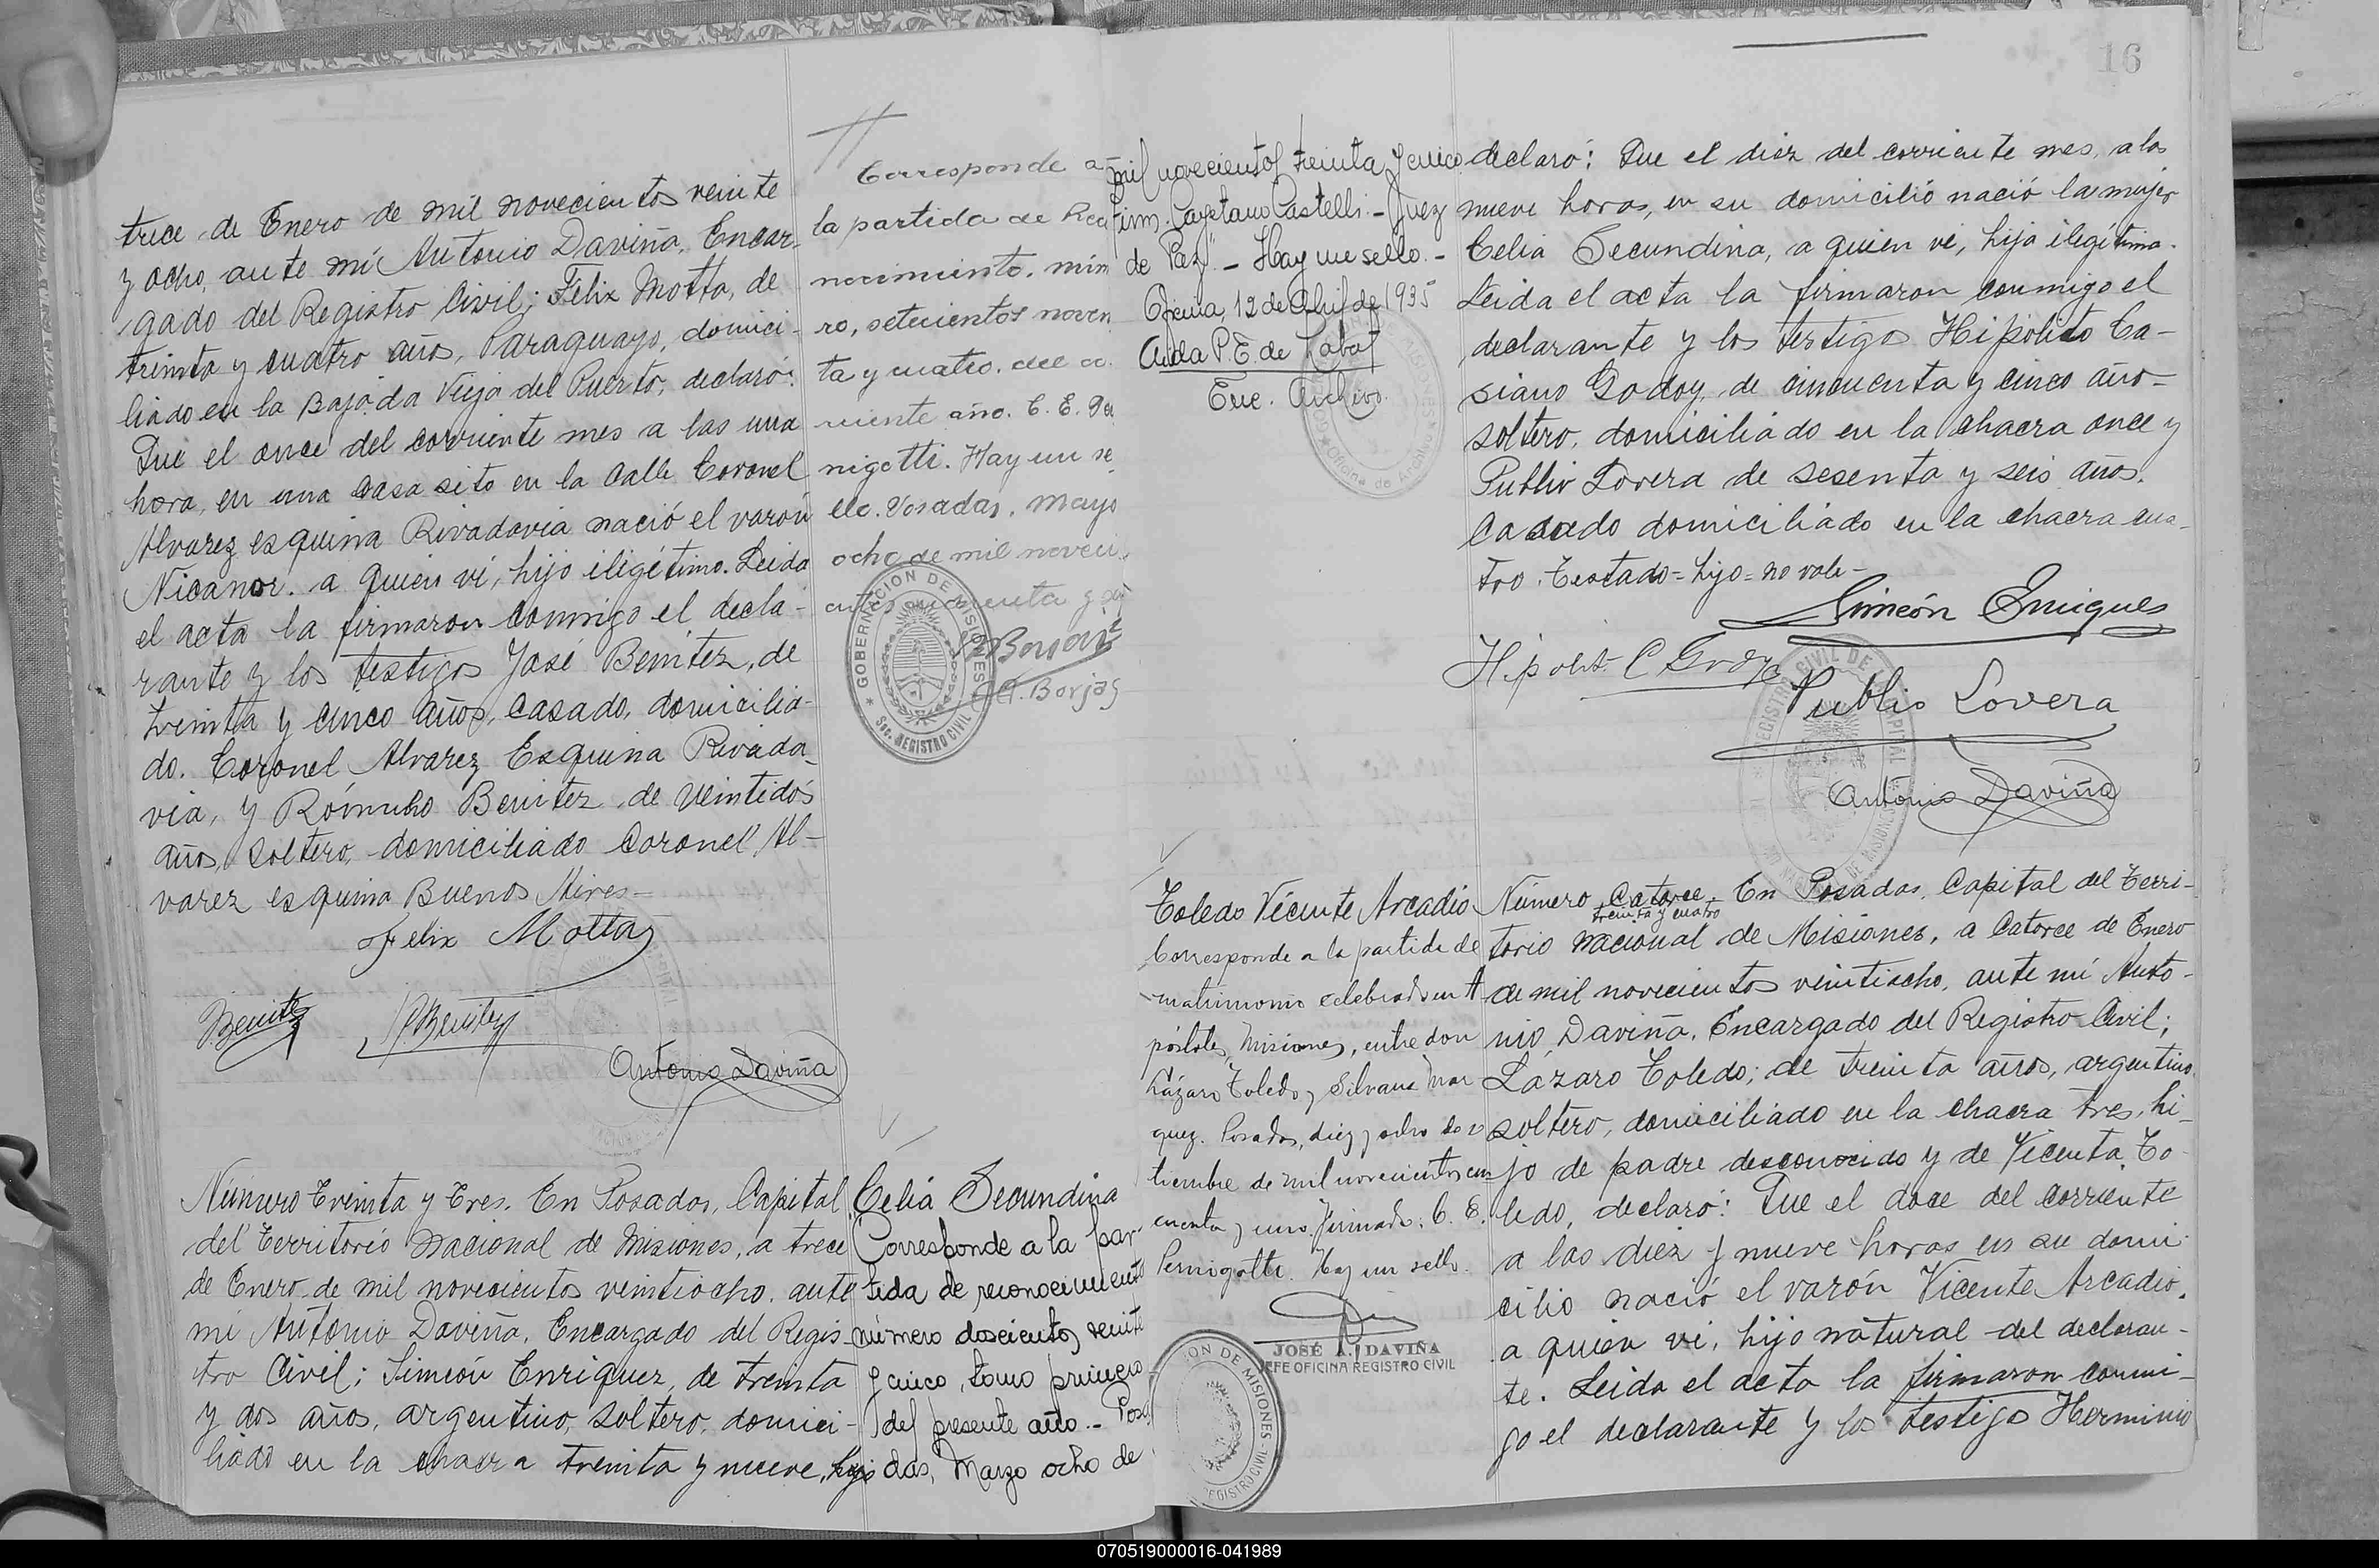 trece de Enero de mil novecientos veinte
y ocho, ante mí Antonio Daviña, Encar-
gado del Registro Civil; Félix Motta, de
treinta y cuatro años, Paraguayo, domici-
liado en la Bajada Vieja del Puerto, declaró:
Que el once del corriente mes a las una
hora, en una casa sito en la Calle Coronel
Alvarez esquina Rivadavia nació el varón
Nicanor. a quien vi, hijo ilegítimo. Leida
el acta la firmaron conmigo el decla-
rante y los testigos José Benitez, de
treinta y cinco años, casado, domicilia-
do. Coronel Alvarez Esquina Rivada-
via, y Rómulo Benitez de veintidós
años, soltero, domiciliado Coronel Al-
varez esquina Buenos Aires-
Felix Motta
J. Benitez R Benitez
Antonio Daviña
Corresponde a
la partida de Reco
nocimiento. núme
ro, setecientos noven
ta y cuatro. del co
rriente año. C. E. Per
nigotti. Hay un se
llo. Posadas, Mayo
ocho de mil noveci
entos
GOBERNACION DE MISIONES
Sec. REGISTRO CIVIL
A. Borjas
Número Treinta y Tres. En Posadas, Capital
del Territorio Nacional de Misiones, a trece
de Enero de mil novecientos veintiocho. ante
mí Antonio Daviña, Encargado del Regis-
tro Civil; Simeón Enriquez, de treinta
y dos años, argentino, soltero, domici-
liado en la chacra treinta y nueve, hijo
Celia Secundina
Corresponde a la par-
tida de reconocimiento
número doscientos veinte
y cinco, tomo primero
del presente año.- Posa
das, Marzo ocho de
16
mil novecientos treinta y cinco
firm. Cayetano Castelli.- Juez
de Paz".- Hay un sello.-
Oficina, 12 de Abril de 1935
Aida P. E. de Labat
Enc. Archivo.
Oficina de Archivo
declaró: Que el diez del corriente mes, a las
nueve horas, en su domicilio nació la mujer
Celia Secundina, a quien vi, hija ilegítima.
Leida el acta la firmaron conmigo el
declarante y los testigos Hipólito Ca-
siano Godoy, de cincuenta y cinco años-
soltero, domiciliado en la chacra once y
Publio Lovera de sesenta y seis años.
Casado domiciliado en la chacra cua-
tro. Testado=hijo=no vale-
Simeón Enriquez
Hipolito C Godoy
Publio Lovera
Antonio Daviña
Toledo Vicente Arcadio
Corresponde a la partida de
matrimonio celebrado en A
póstoles, Misiones, entre don
Lázaro Toledo y Silvana Mar
quez. Posadas, diez y ocho de se
tiembre de mil novecientos cin
cuenta y uno. Firmado: C. E.
Pernigotti. Hay un sello.
JOSÉ A. DAVIÑA
JEFE OFICINA REGISTRO CIVIL
Número Catorce. En Posadas, Capital del Terri-
treinta y cuatro
torio Nacional de Misiones, a Catorce de Enero
de mil novecientos veintiocho, ante mí Anto-
nio Daviña, Encargado del Registro Civil;
Lázaro Toledo; de treinta años, argentino,
soltero, domiciliado en la chacra tres, hi-
jo de padre desconocido y de Vicenta To-
ledo, declaró: Que el doce del corriente
a las diez y nueve horas en su domi-
cilio nació el varón Vicente Arcadio,
a quien vi, hijo natural del declaran-
te. Leida el acta la firmaron conmi-
go el declarante y los testigos Herminio
070519000016-041989